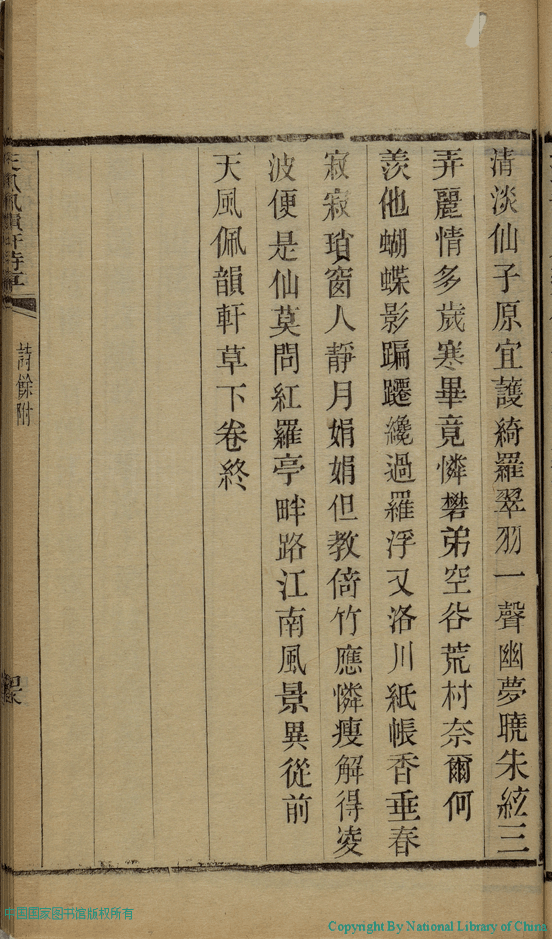 清淡仙子原宜護綺羅翠羽一聲幽夢曉朱絃三
弄麗情多歲寒畢竟憐礬弟空谷荒村奈爾何
羨他蝴蝶影蹁躚纔過羅浮又洛川紙帳香垂春
寂寂瑣窗人靜月娟娟但教倚竹應憐瘦解得凌
波便是仙莫問紅羅亭畔路江南風景異從前
天風佩韻軒草下卷終
詩餘附
中国国家图书馆版权所有
Copyright By National Library of China